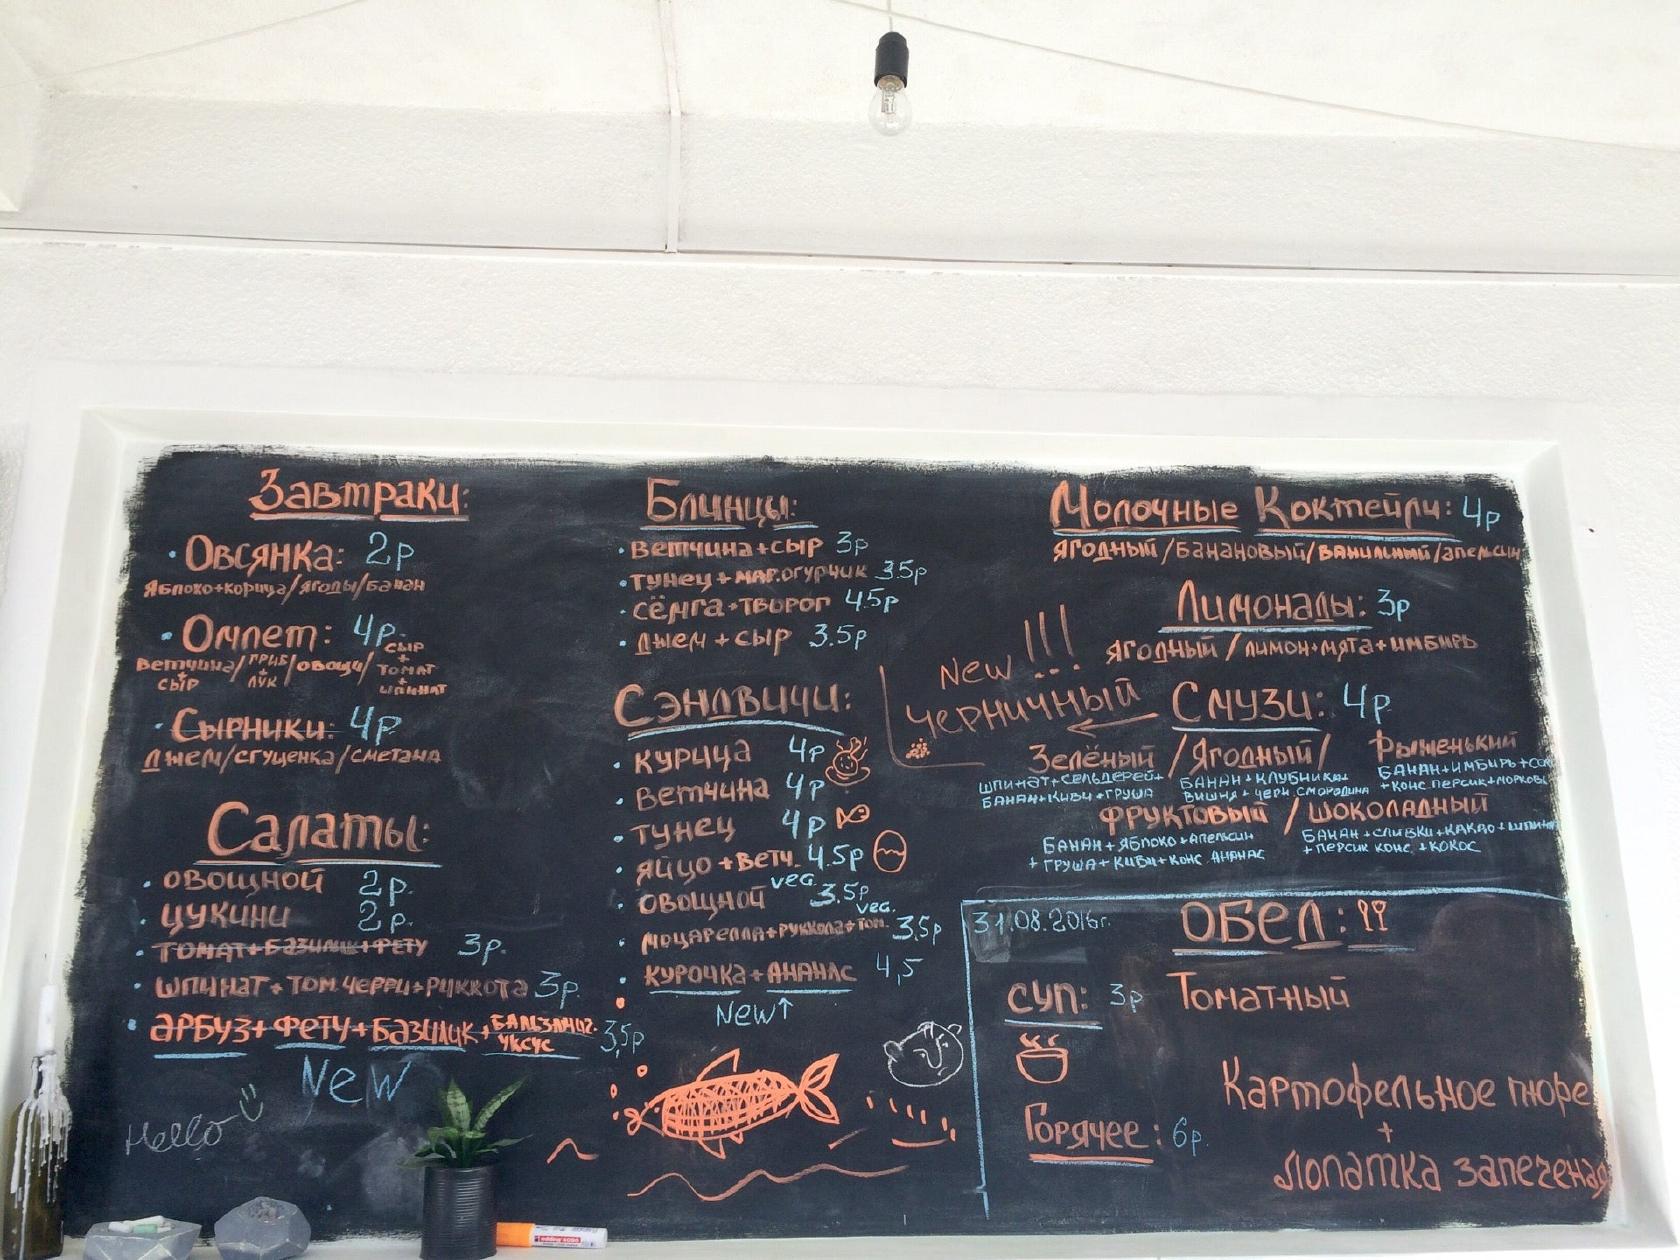 Завтраки:
• Овсянка: 2р
яблоко+корица/ягоды/банан
• Омлет: 4р.
ветчина+сыр/гриб+лук/овощи/сыр+томат+шпинат
• Сырники: 4р
джем/сгущенка/сметана
Салаты:
• овощной 2р.
• цукини 2р.
• томат+базилик+фету 3р.
• шпинат+том.черри+руккота 3р.
• арбуз+фету+базилик+бальзамич. уксус 3,5р
New
Hello
Блинцы:
• ветчина+сыр 3р
• тунец+мар.огурчик 3.5р
• сёмга+творог 4.5р
• джем+сыр 3.5р
Сэндвичи:
• курица 4р
• ветчина 4р
• тунец 4р
• яйцо+ветч. 4.5р
• овощной veg. 3.5р
• моцарелла+руккола+том. veg. 3.5р
• курочка+ананас 4,5
New↑
Молочные Коктейли: 4р
ягодный/банановый/ванильный/апельсин
Лимонады: 3р
ягодный/лимон+мята+имбирь
New!!!
черничный
Смузи: 4р
Зелёный/Ягодный/Рыженький
шпинат+сельдерей+
банан+киви+груша
банан+клубника+
вишня+черн.смородина
банан+имбирь+
+конс персик+морковь
фруктовый/шоколадный
банан+яблоко+апельсин
+груша+киви+конс ананас
банан+сливки+какао+шпинат
+персик конс.+кокос
31.08.2016г.
ОБЕД:
суп: 3р Томатный
Горячее: 6р.
Картофельное пюре
+
Лопатка запеченая
edding